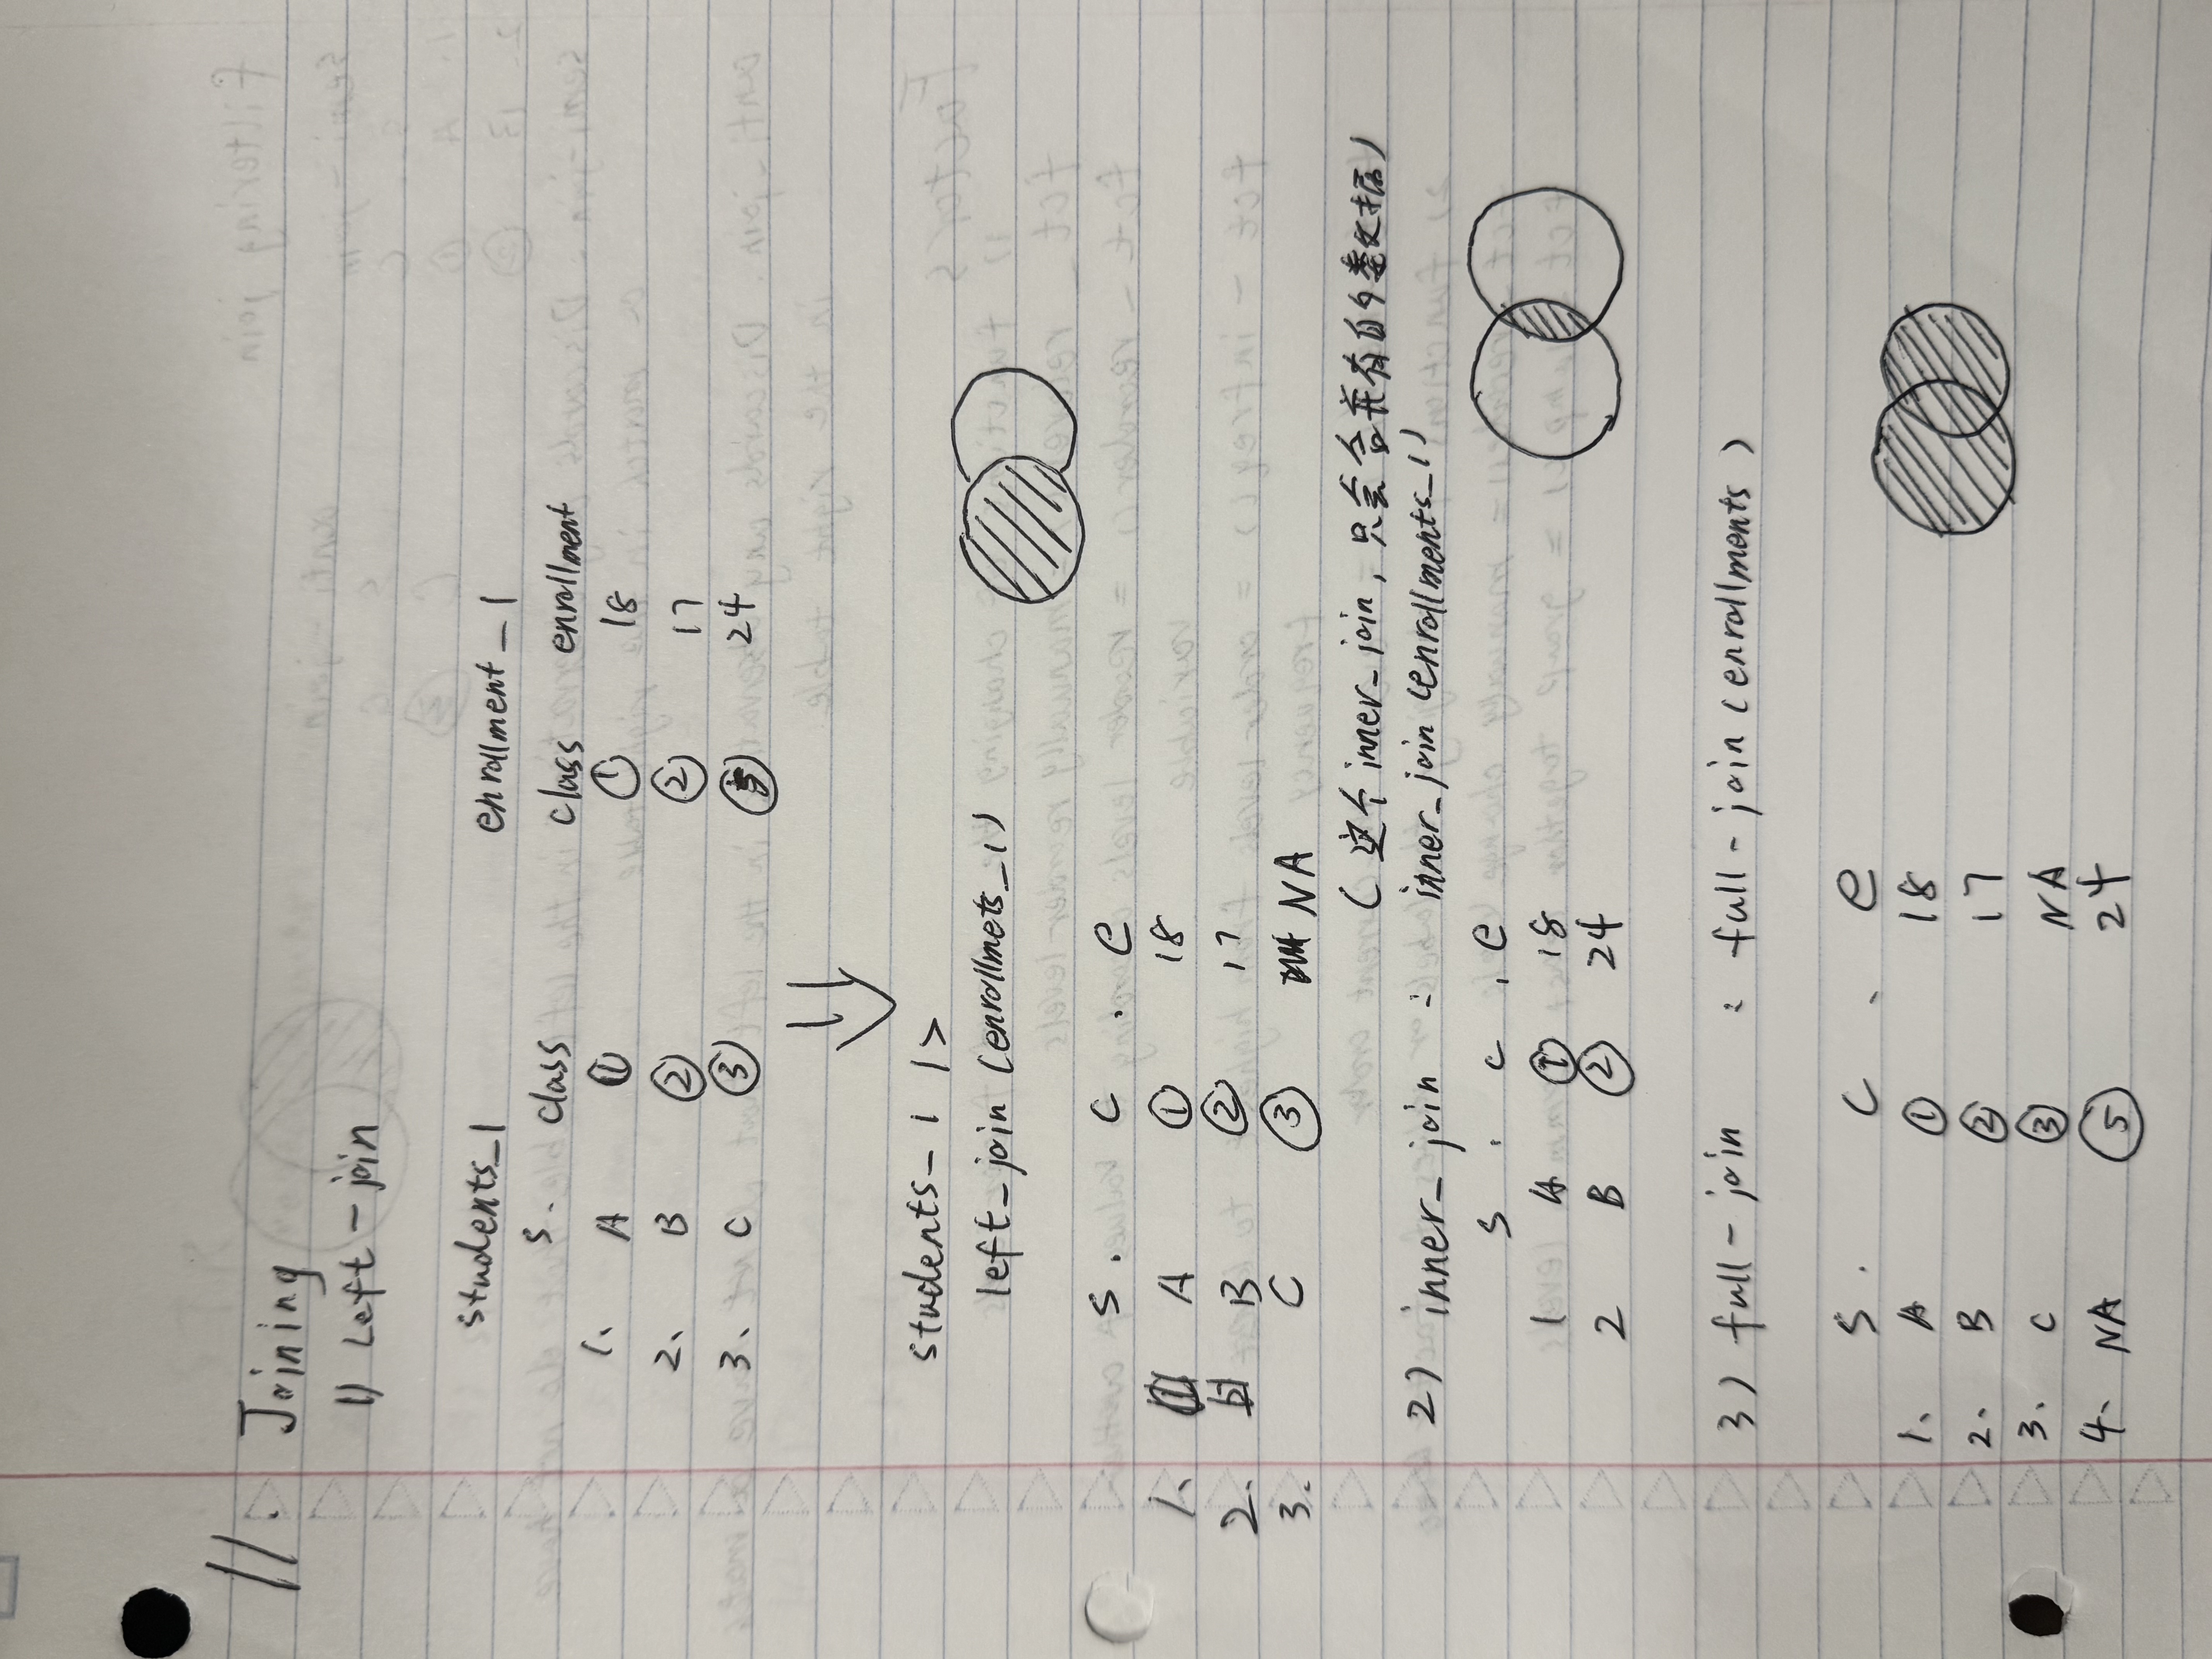 11. Joining
1) Left-join
students_1 enrollment_1
s. class class enrollment
1、 A ① ① 18
2、 B ② ② 17
3、 C ③ ⑤ 24
students_1 |>
left_join (enrollmets_1)
s. c . e
1、 A ① 18
2. B ② 17
3. C ③ NA
(这个inner_join, 只会合并有的数据)
2) inner_join : inner_join (enrollments_1)
s . c . e
1 A ① 18
2 B ② 24
3) full-join : full-join (enrollments)
s . c . e
1、 A ① 18
2. B ② 17
3、 C ③ NA
4. NA ⑤ 24